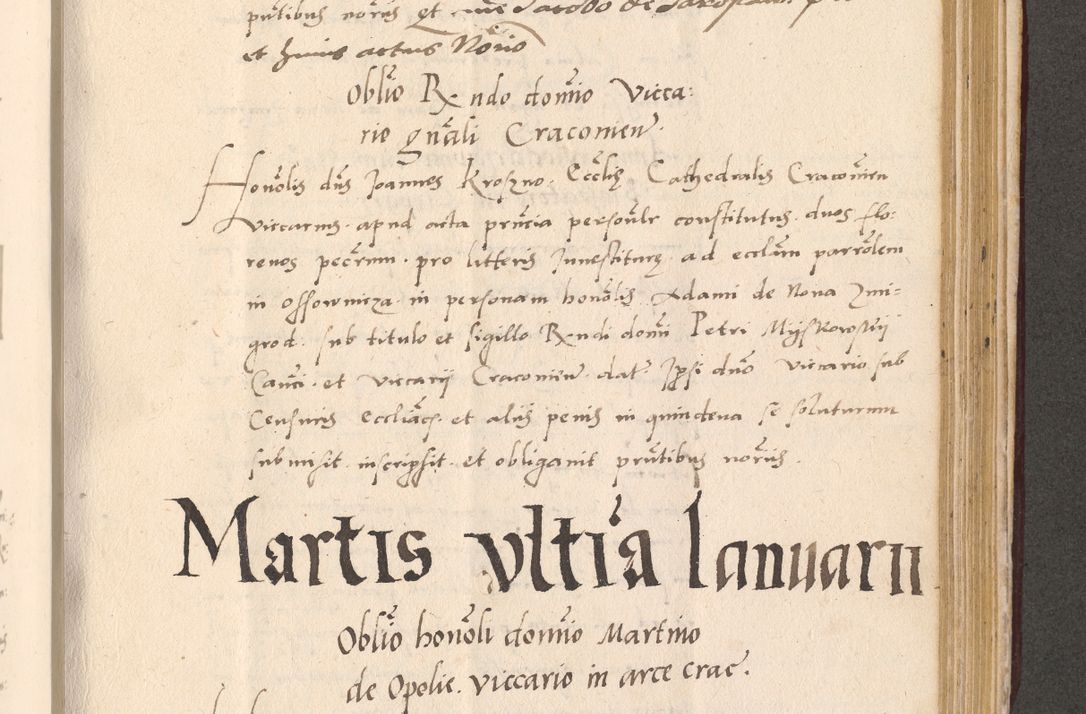 et huius actus No͞rio
Obl͞io Rx ndo dom͞io Vicca:
rie gn͞ali Craconien͛.
Hono͞lis d͞ns Joannes Kroszno. Eccl͞ię Cathedralis Craco͞nien
viccarius. apud acta pr͞ncia perso͞nlr constitutus. duos flo:
renos pec͞rum. pro litteris Inuestiturę. ad eccl͞am parr͞olem
in Ossownicza. in personam hono͞lis Adami de Nova Zmi-
grod. sub titulo et sigillo Rx ndi dom͞i Petri Mijskowskij
Can͞ci. et viccarij Craconien͛. dat͛ Ip͞si d͞no viccario sub
Censuris eccl͞iacs. et aliis penis in quindena se soluturum
submisit. inscripsit. et obligauit pr͞ntibus no͞riis.
Martis vlti͞a Ianuarii
Obl͞io hono͞li dom͞io Martino
de Opolie. viccario in arce crac͛.